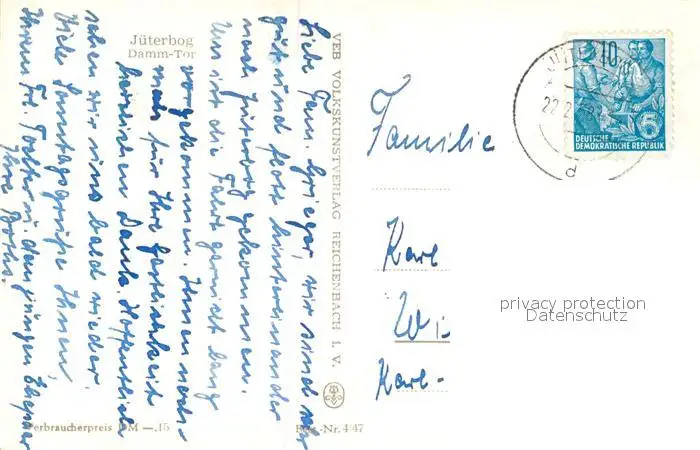 Jüterbog
Damm-Tor
Liebe Fam. Krieger, wir sind sehr
gut und flott hintereinander
nach Jüterbog gekommen.
Uns ist die Fahrt gar nicht lang
vorgekommen. Ihnen noch-
mals für Ihre
herzlichen Dank. Hoffentlich
sehen wir uns bald wieder.
Viele Sonntagsgrüße Ihnen,
Ihrem Frl. Tochter u. dem jungen Ehepaar
Ihre
VEB VOLKSKUNSTVERLAG REICHENBACH I. V.
Verbraucherpreis DM —.15
Reg.-Nr. 4/47
Familie
Karl
Wi
Karl-
10
22.2
d
5
DEUTSCHE
DEMOKRATISCHE REPUBLIK
privacy protection
Datenschutz